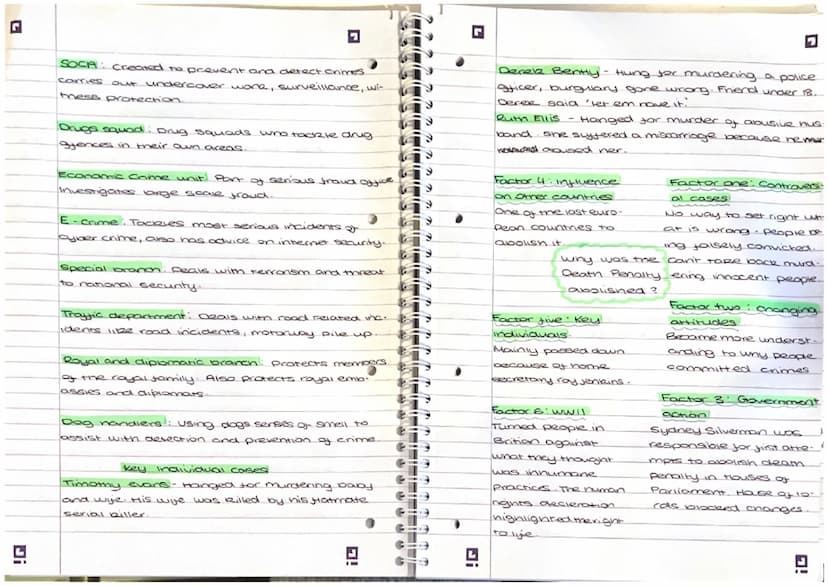 SOCA: Created to prevent and detect crimes
carries out undercover work, surveillance, wi-
tness protection.
Drugs squad: Drug squads who tackle drug
offences in their own areas.
Economic Crime unit: Part of serious fraud office
investigates large scale fraud.
E-Crime: Tackles most serious incidents of
cyber crime, also has advice on internet security.
Special branch: Deals with terrorism and threat
to national security.
Traffic department: Deals with road related inc-
idents like road incidents, motorway pile up.
Royal and diplomatic branch: Protects members
of the royal family. Also protects royal emb-
assies and diplomats.
Dog handlers: Using dogs senses of smell to
assist with detection and prevention of crime.
Key individual cases
Timothy evans - Hanged for murdering baby
and wife. His wife was killed by his flatmate
serial killer.
Derek Bently - Hung for murdering a police
officer, burglary gone wrong. Friend under 18.
Derek said 'let em have it'.
Ruth Ellis - Hanged for murder of abusive hus-
band. She suffered a miscarriage because he
abused her.
Factor 4: influence
on other countries
One of the last euro-
pean countries to
abolish it.
Why was the
Death Penalty
abolished?
Factor five: Key
individuals
Mainly passed down
because of home
secretary roy jenkins.
Factor 6: WWII
Turned people in
Britian against
what they thought
was inhumane
practices. The human
rights decleration
highlighted the right
to life.
Factor one: Controversi-
al cases
No way to set right wh-
at is wrong. People be-
ing falsely convicted.
Can't take back murd-
ering inocent people
Factor two: changing
attitudes
Became more underst-
anding to why people
committed crimes
Factor 3: Government
action
Sydney Silverman was
responsible for first atte-
mpts to abolish death
penalty in houses of
Parliament. House of lo-
rds blocked changes.